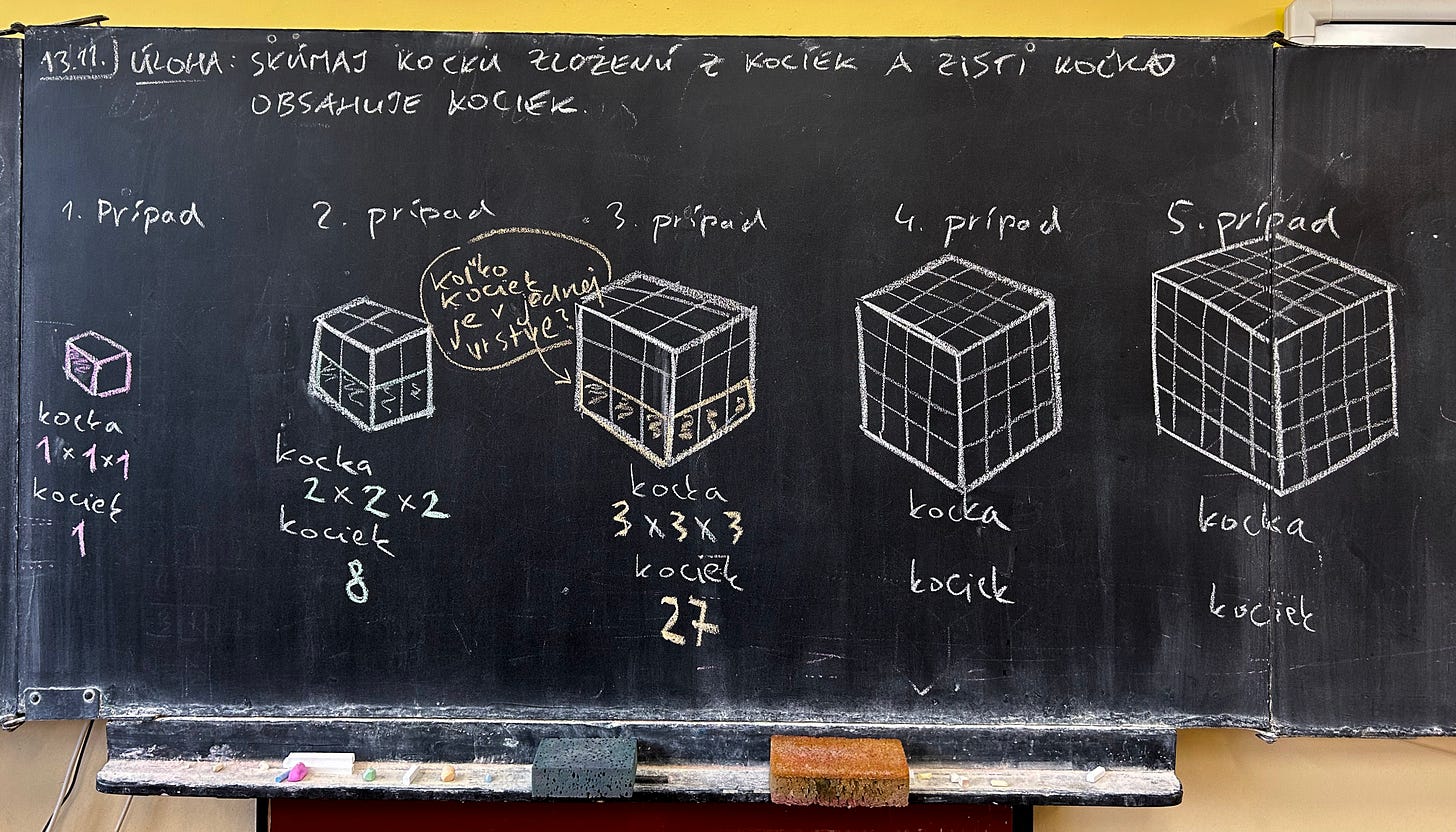 13.11.] ÚLOHA: SKÚMAJ KOCKU ZLOŽENÚ Z KOCIEK A ZISTI KOĽKO
OBSAHUJE KOCIEK.
1. Prípad
kocka
1×1×1
kociek
1
2. prípad
kocka
2×2×2
kociek
8
koľko
kociek
je v jednej
vrstve?
3. prípad
kocka
3×3×3
kociek
27
4. prípad
kocka
kociek
5. prípad
kocka
kociek